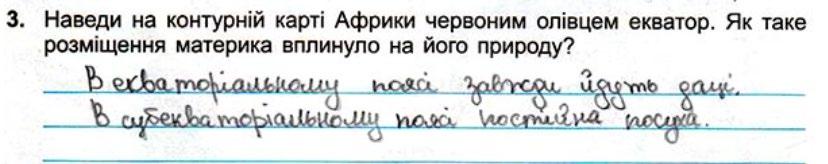 3. Наведи на контурній карті Африки червоним олівцем екватор. Як таке
розміщення материка вплинуло на його природу?
В екваторіальному поясі завжди йдуть дащі.
В субекваторіальному поясі постійна посуха.